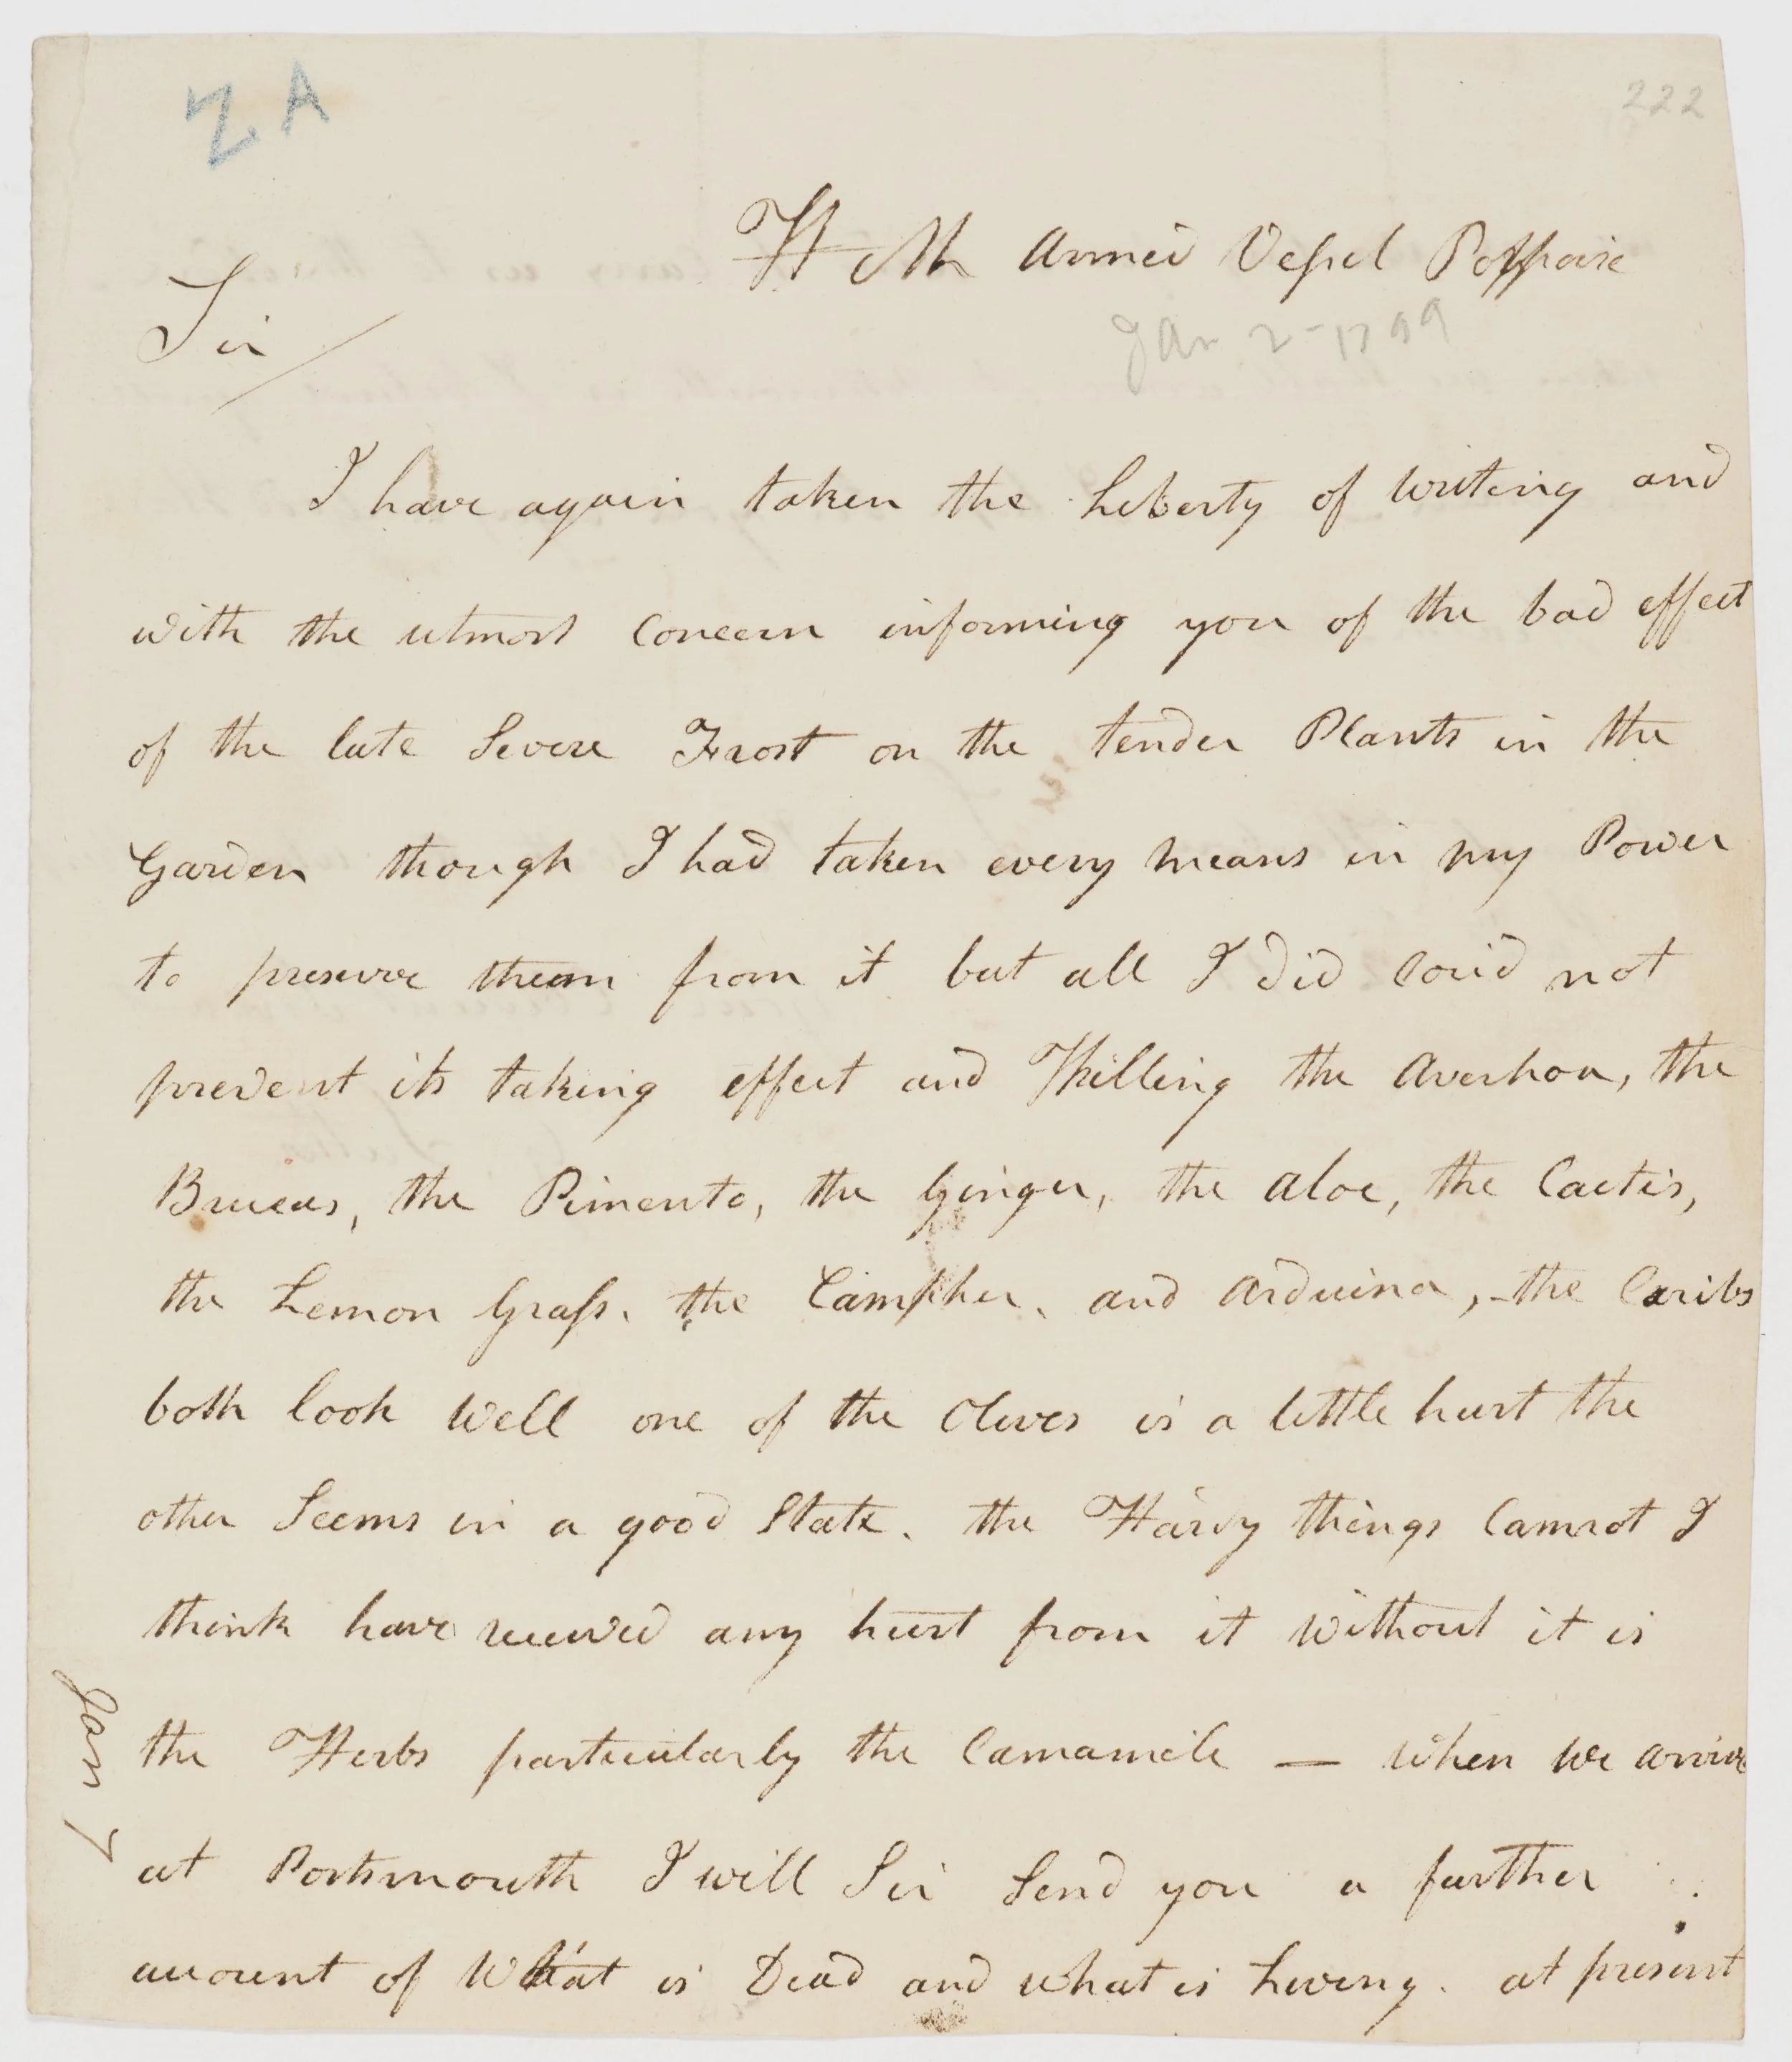 ZA
222
H M Armed Vessel Porpoise
Jan 2-1799
Sir/
I have again taken the Liberty of writing and
with the utmost Concern informing you of the bad effect
of the late Severe Frost on the tender Plants in the
Garden though I had taken every means in my Power
to preserve them from it but all I did Cou'd not
prevent its taking effect and Killing the Averhoa, the
Bruceas, the Pimento, the Ginger, the Aloe, the Cactis,
the Lemon Grass, the Camphher, and Arduina, - the Caribs
both look Well one of the Olives is a little hurt the
other Seems in a good State. the Hardy things Cannot I
think have received any hurt from it without it is
the Herbs particularly the Camamile — when we arrive
at Portsmouth I will Sir Send you a further
account of What is Dead and what is Living. at present
Jan 7